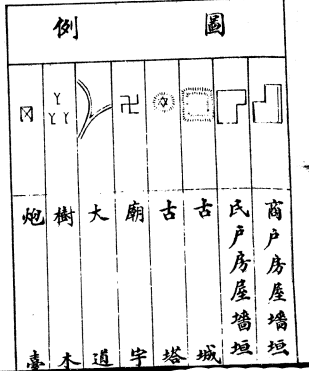 圖例
商戶房屋墻垣
民戶房屋墻垣
古城
古塔
廟宇
大道
樹木
炮臺